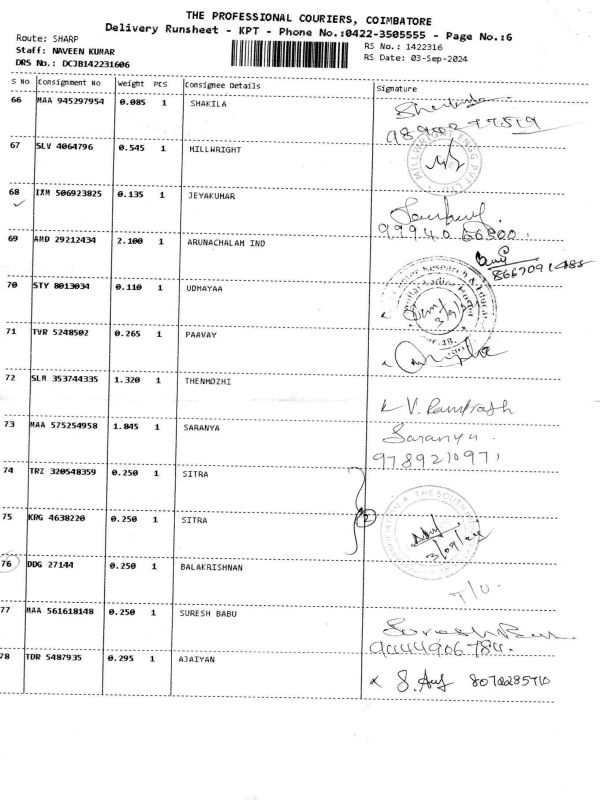 THE PROFESSIONAL COURIERS, COIMBATORE
Delivery Runsheet - KPT - Phone No.:0422-3505555 - Page No.:6
Route: SHARP
RS No.: 1422316
Staff: NAVEEN KUMAR
RS Date: 03-Sep-2024
DRS No.: DCJB142231606
S No Consignment No Weight PCS Consignee Details Signature
66 MAA 945297954 0.085 1 SHAKILA
67 SLV 4064796 0.545 1 MILLWRIGHT
68 IXM 506923825 0.135 1 JEYAKUMAR
99940 66800.
69 AMD 29212434 2.100 1 ARUNACHALAM IND
70 STY 8013034 0.110 1 UDHAYAA
71 TVR 5248502 0.265 1 PAAVAY
72 SLM 353744335 1.320 1 THENMOZHI
73 MAA 575254958 1.845 1 SARANYA Saranya.
9789210971
74 TRZ 320548359 0.250 1 SITRA
75 KRG 4638220 0.250 1 SITRA
3/09/24
76 DDG 27144 0.250 1 BALAKRISHNAN
77 MAA 561618148 0.250 1 SURESH BABU
9444906784.
78 TDR 5487935 0.295 1 AJAIYAN